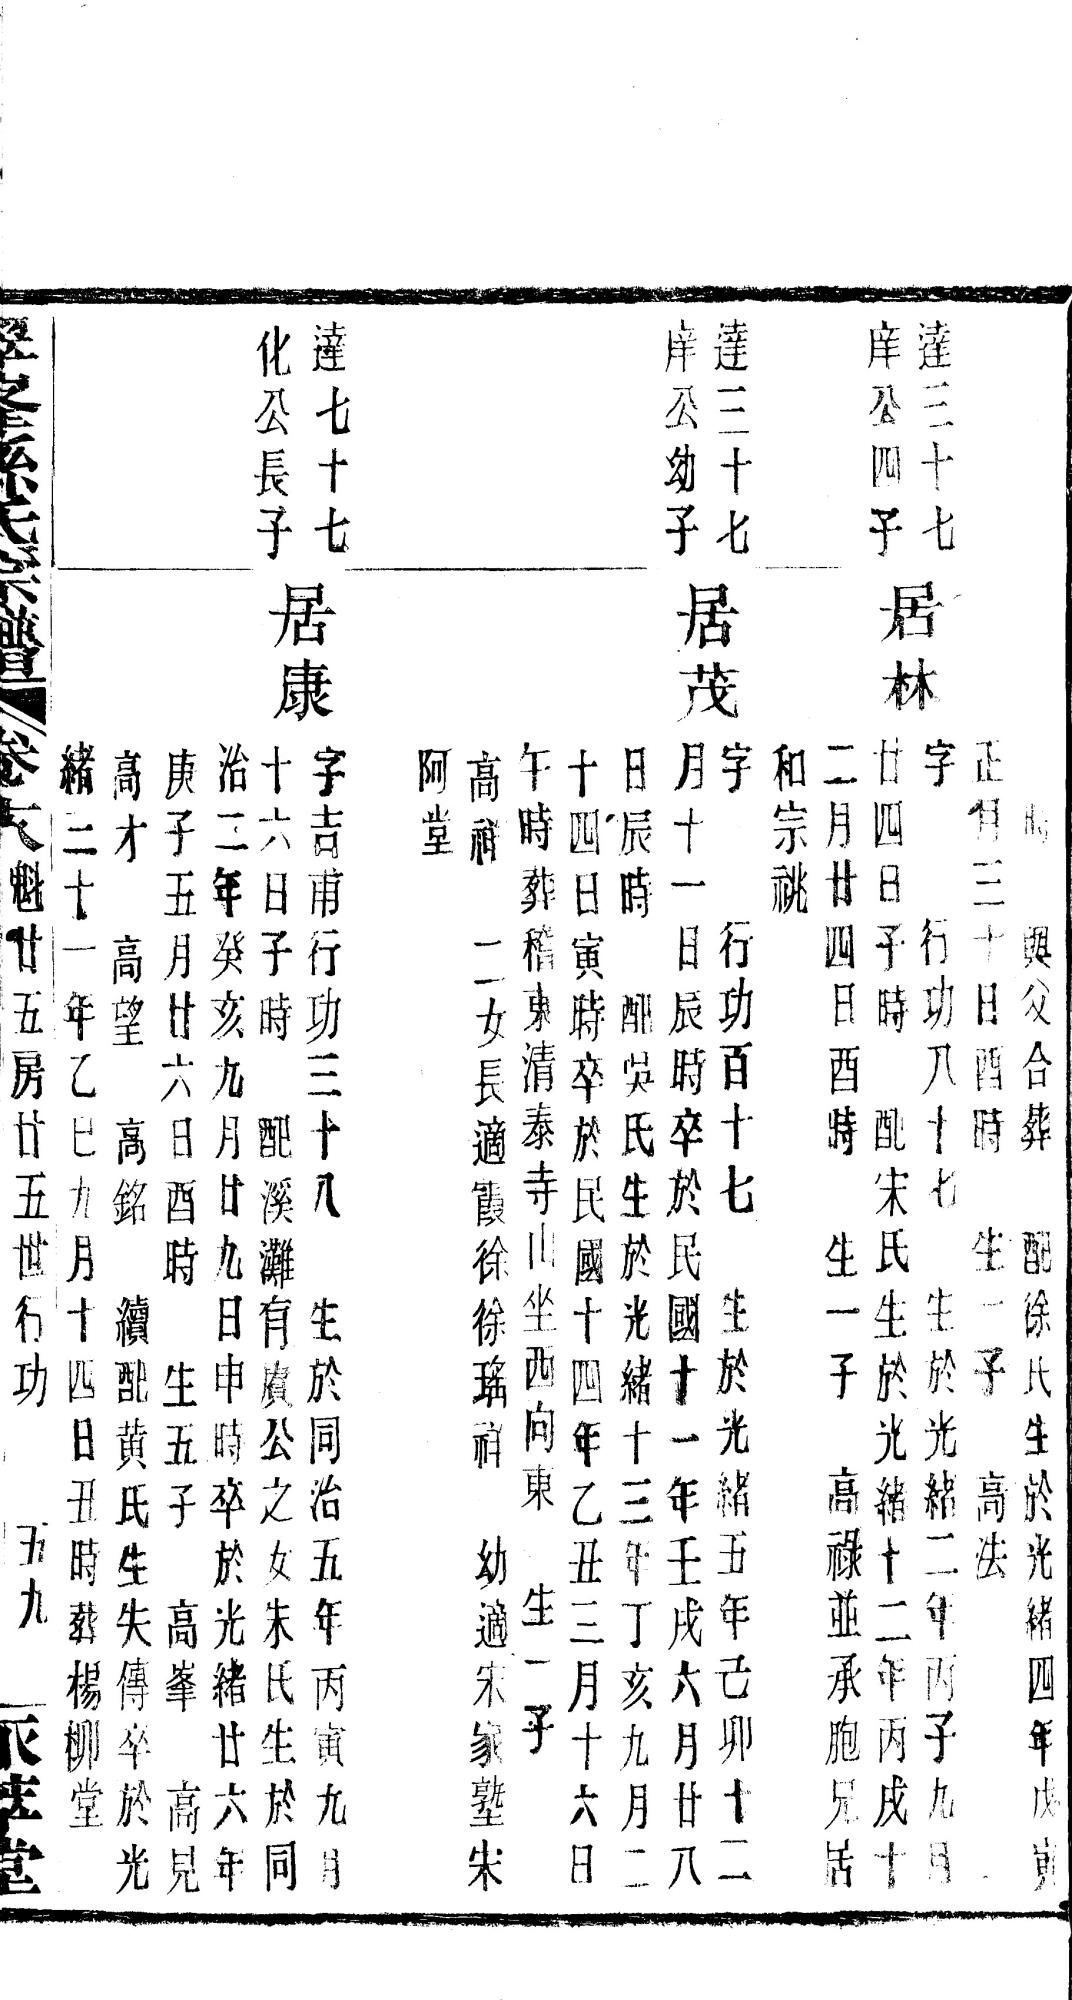 時　與父合葬　配徐氏生於光緒四年戊寅
正月三十日酉時　生一子　高法
達三十七
庠公四子
居林
字　行功八十七　生於光緒二年丙子九月
廿四日子時　配宋氏生於光緒十二年丙戌十
二月廿四日酉時　生一子　高祿並承胞兄居
和宗祧
達三十七
庠公幼子
居茂
字　行功百十七　生於光緒五年己卯十二
月十一日辰時卒於民國十一年壬戌六月廿八
日辰時　配吳氏生於光緒十三年丁亥九月二
十四日寅時卒於民國十四年乙丑三月十六日
午時葬稽東清泰寺山坐西向東　生一子
高祥　二女長適霞徐徐瑤祥　幼適宋家塾朱
阿堂
達七十七
化公長子
居康
字吉甫行功三十八　生於同治五年丙寅九月
十六日子時　配溪灘有賡公之女朱氏生於同
治二年癸亥九月廿九日申時卒於光緒廿六年
庚子五月廿六日酉時　生五子　高峯　高見
高才　高望　高銘　續配黃氏生失傳卒於光
緒二十一年乙巳九月十四日丑時葬楊柳堂
孫氏宗譜　卷六　魁廿五房廿五世行功　五九　堂